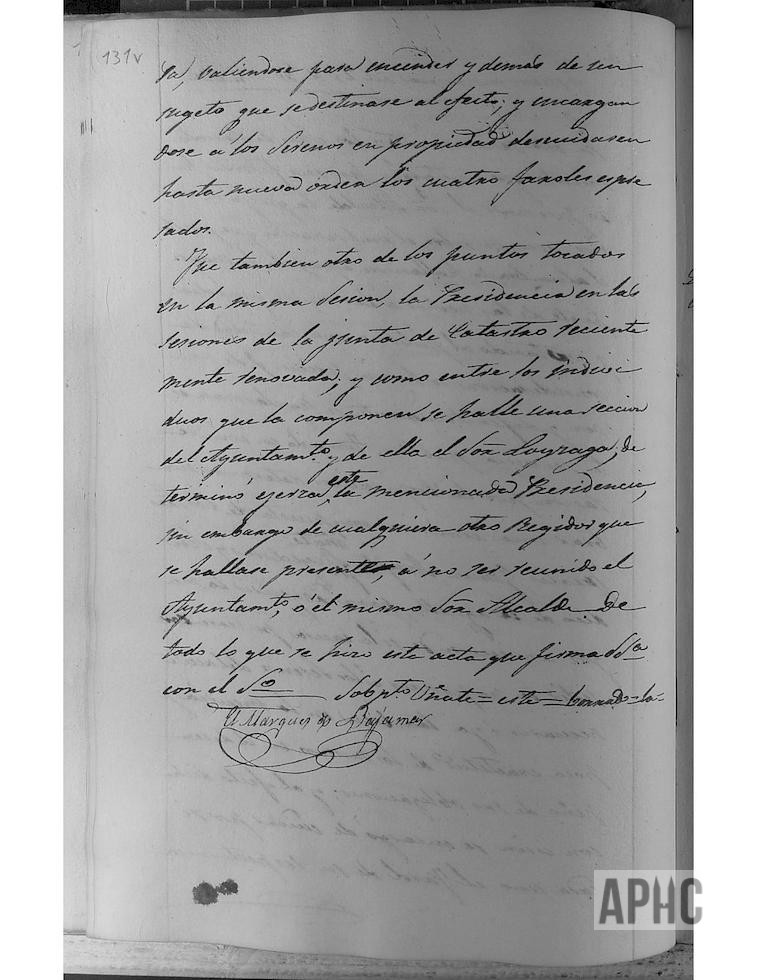 131v
ra, valiendose para encender y demás de un
sugeto que se destinase al efecto; y encargan
dose á los Serenos en propiedad descuidasen
hasta nueva orden los cuatro faroles espre
sados.
Fue tambien otro de los puntos tocados
en la misma Sesion, la Presidencia en las
sesiones de la junta de Catastro reciente
mente renovada; y como entre los indivi
duos que la componen se halle una seccion
del Ayuntamto. y de ella el Sor. Loyzaga, de
terminó ejerza, este la mencionada Presidencia,
sin embargo de cualquiera otro Regidor que
se hallase presente, á no ser reunido el
Ayuntamto, ó el mismo Sor. Alcalde. De
todo lo que se hizo este acta que firma SSa
con el Sº Sobpto. = este = borrado = la =
El Marques de
APHC